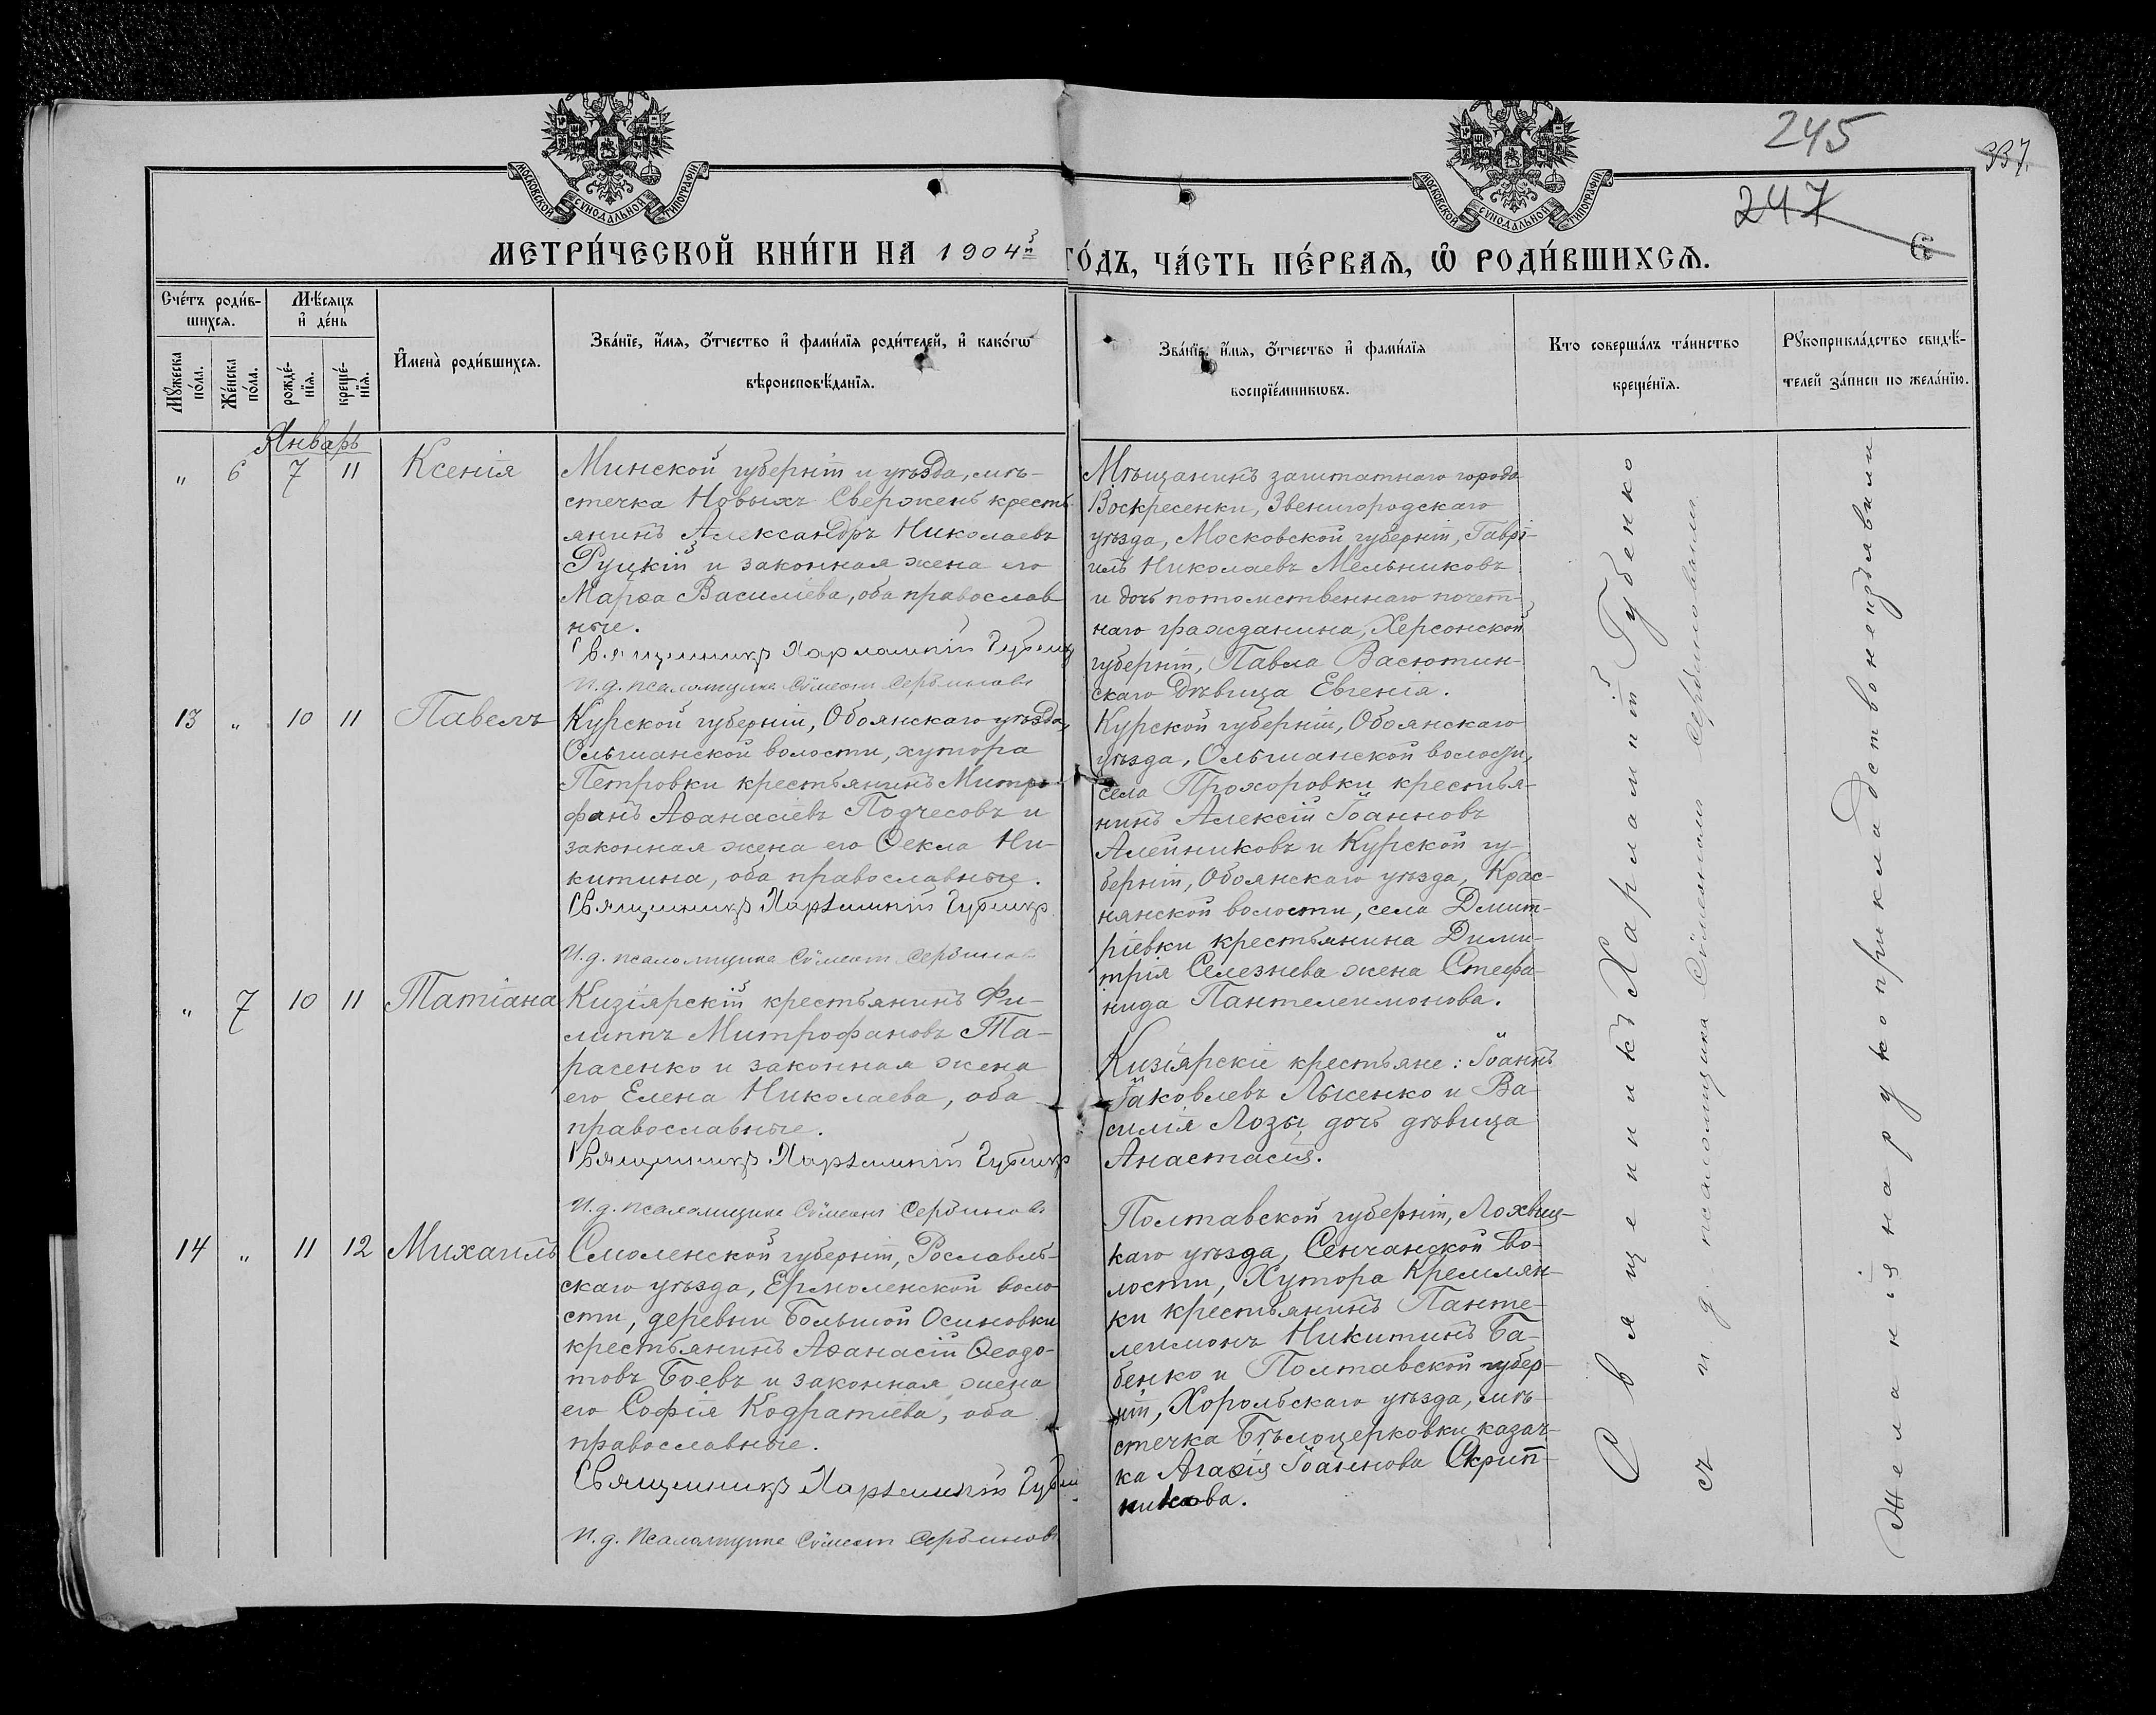 245
337.
247
6
МОСКОВСКОЙ СѴНОДАЛЬНОЙ ТИПОГРАФІИ
МОСКОВСКОЙ СѴНОДАЛЬНОЙ ТИПОГРАФІИ
МЕТРИ́ЧЕСКОЙ КНИ́ГИ НА 1904й ГО́ДЪ, ЧА́СТЬ ПЕ́РВАѦ, Ѽ РОДИ́ВШИХСѦ.
Счéтъ роди́в-
шихсѧ.
Мꙋ́жеска
по́ла.
Же́нска
по́ла.
Мѣ́сѧцъ
и҆ де́нь
рожде́-
нїѧ.
креще́-
нїѧ.
И҆менà роди́вшихсѧ.
Зва́нїе, и҆́мѧ, ѻ҆́тчество и҆ фами́лїѧ роди́телей, и҆ како́гѡ
вѣроисповѣ́данїѧ.
Зва́нїе, и҆́мѧ, ѻ҆́тчество и҆ фами́лїѧ
воспрїе́мникѡвъ.
Кто соверша́лъ та́инство
креще́нїѧ.
Рꙋкоприкла́дство свидѣ́-
телей за́писи по жела́нїю.
Январь
" 6 7 11 Ксенія
Минской губерніи и уѣзда, мѣ-
стечка Новыхъ Сверженъ кресть-
янинъ Александръ Николаевъ
Руцкій и законная жена его
Марѳа Василіева, оба православ
ные.
Священникъ Харлампій Губенко
И. д. псаломщика Сѵмеонъ Сербиновъ
Мѣщанинъ заштатнаго города
Воскресенки, Звенигородскаго
уѣзда, Московской губерніи, Гаврі-
илъ Николаевъ Мельниковъ
и дочь потомственнаго почет-
наго гражданина, Херсонской
губерніи, Павла Васютин-
скаго дѣвица Евгенія.
13 " 10 11 Павелъ
Курской губерніи, Обоянскаго уѣзда,
Ольшанской волости, хутора
Петровки крестьянинъ Митро-
фанъ Аѳанасіевъ Подчесовъ и
законная жена его Ѳекла Ни-
китина, оба православные.
Священникъ Харлампій Губенко
И. д. псаломщика Сѵмеонъ Сербиновъ
Курской губерніи, Обоянскаго
уѣзда, Ольшанской волости,
села Прохоровки крестья-
нинъ Алексій Іоанновъ
Алейниковъ и Курской гу-
берніи, Обоянскаго уѣзда, Крас-
нянской волости, села Дмит-
ріевки крестьянина Дими-
трія Селезнева жена Стефа-
нида Пантелеимонова.
" 7 10 11 Татіана
Кизіярскій крестьянинъ Фи-
липпъ Митрофановъ Та-
расенко и законная жена
его Елена Николаева, оба
православные.
Священникъ Харлампій Губенко
И. д. псаломщика Сѵмеонъ Сербиновъ
Кизіярскіе крестьяне: Іоаннъ
Іаковлевъ Лысенко и Ва-
силія Лозы дочь дѣвица
Анастасія.
14 " 11 12 Михаилъ
Смоленской губерніи, Рославль-
скаго уѣзда, Ермоленской воло
сти, деревни Большой Осиновки
крестьянинъ Аѳанасій Ѳеодо-
товъ Боевъ и законная жена
его Софія Кодратіева, оба
православные.
Священникъ Харлампій Губен
И. д. Псаломщика Сѵмеонъ Сербиновъ
Полтавской губерніи, Лохвиц-
каго уѣзда, Сенчанской во-
лости, Хутора Кремлян-
ки крестьянинъ Панте-
леимонъ Никитинъ Ба-
бенко и Полтавской губер-
ніи, Хорольскаго уѣзда, мѣ-
стечка Бѣлоцерковки казач-
ка Агаѳія Іоаннова Скрип-
никова.
Священникъ Харлампій Губенко
съ и. д. псаломщика Сѵмеономъ Сербиновымъ
Желанія на рукоприкладство не изъявили